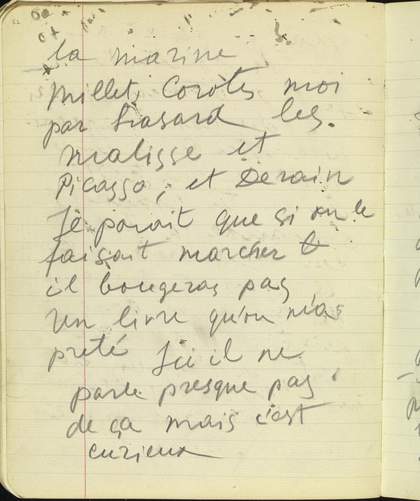 la marine
Millet, Corots moi
par hasard les
Matisse et
Picasso, et Derain
Je parait que si on le
faisait marcher
il bougeras pas
un livre qu'on m'as
preté ici il ne
parle presque pas
de ça mais c'est
curieux